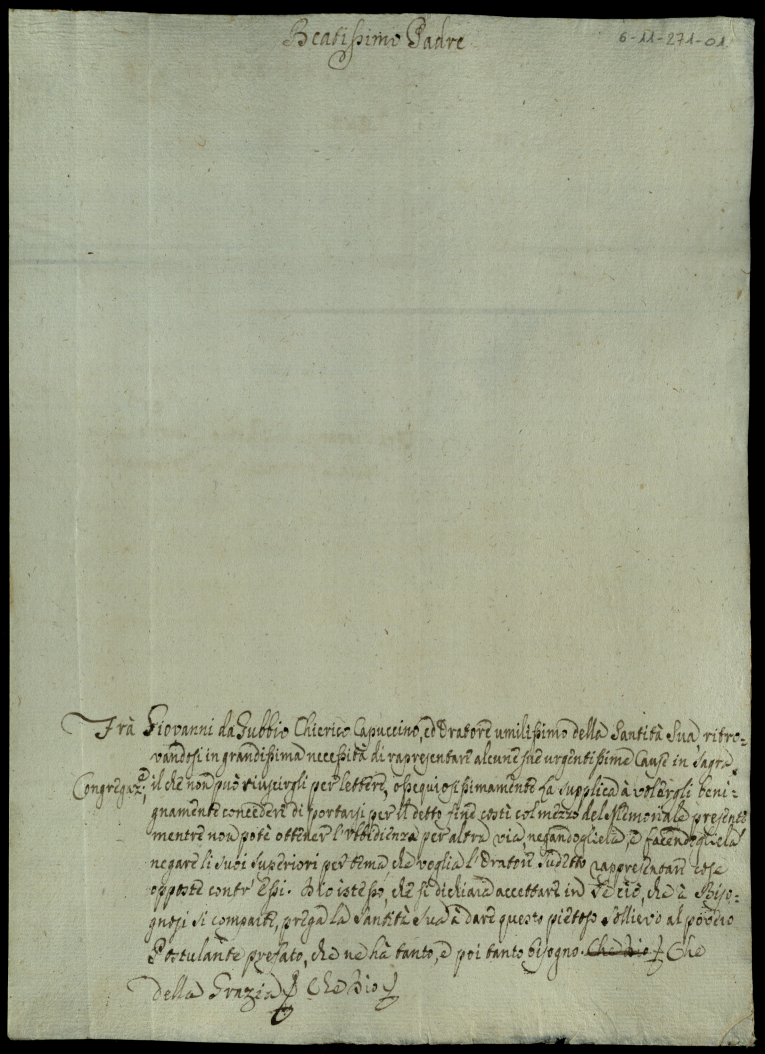 Beatissimo Padre
6-11-271-01
Frà Giovanni da Gubbio Chierico Capuccino, ed Oratore umilissimo della Santità Sua, ritro=
vandosi in grandissima necessità di rapresentare alcune sue urgentissime Cause in Sagra
Congregaz.e, il che non può riuscirgli per lettere, ossequiosissimamente la supplica à volergli beni=
gnamente concedere di portarsi per il detto fine costì col mezzo del Memoriale presente
mentre non potè ottener l'Obidienza per altra via, negandogliela, e facendogliela
negare li suoi Superiori per tema, che voglia l'Oratore sudetto rappresentare cose
opposte contr' Essi. Dio istesso, che si dichiara accettare in Se ciò, che à Biso=
gnosi si comparte, prega la Santità Sua à dare questo pietoso sollievo al povero
Postulante prefato, che ne hà tanto, e poi tanto bisogno. Che Dio Che
della Grazia Che Dio